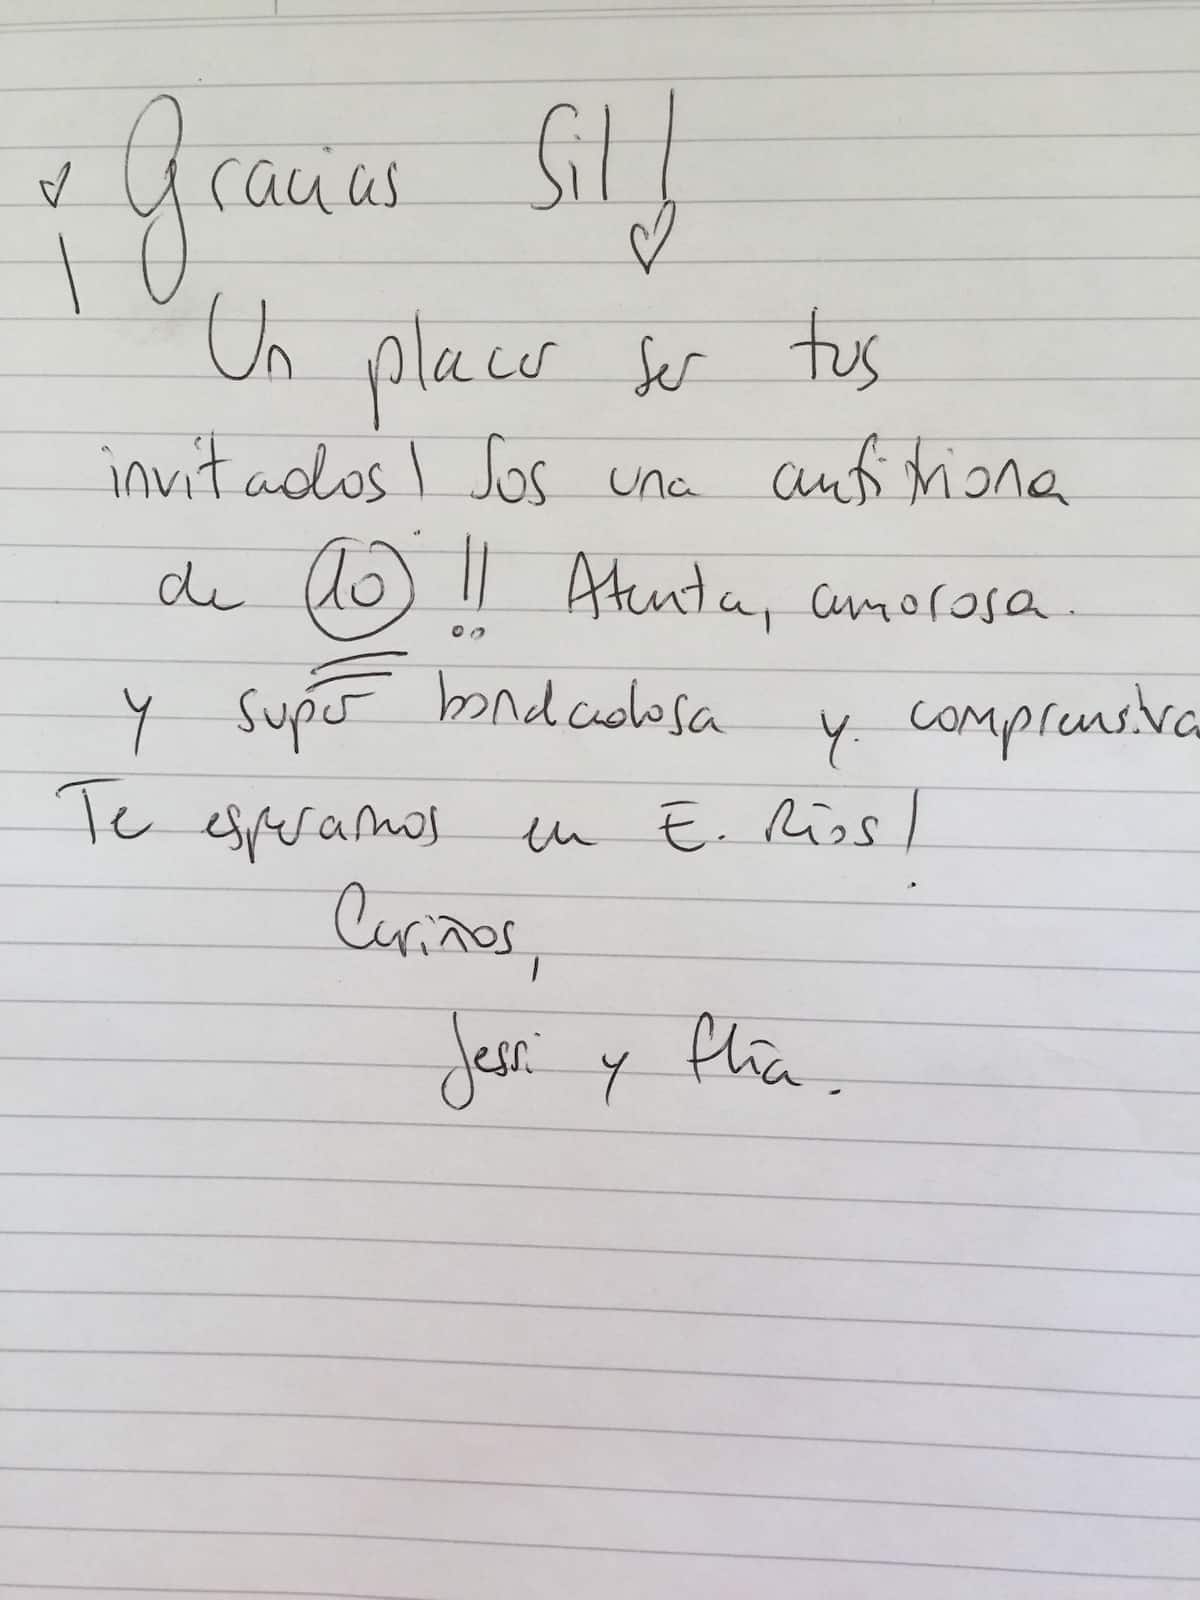 ¡Gracias Sil!
Un placer ser tus
invitados! Sos una anfitriona
de 10 !! Atenta, amorosa.
y super bondadosa y. comprensiva
Te esperamos en E. Ríos!
Cariños,
Jessi y flia.